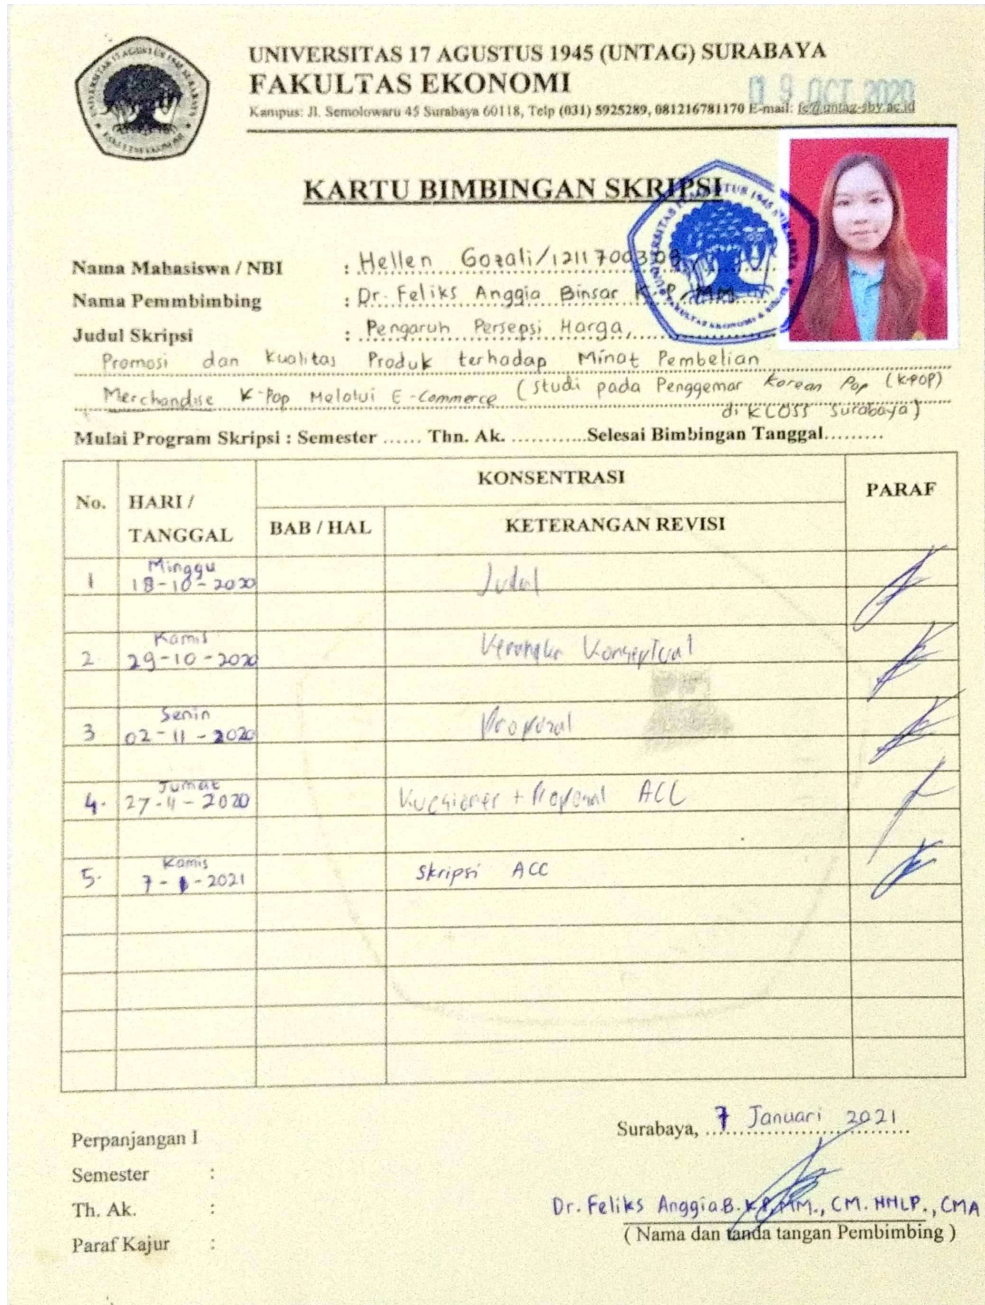 UNIVERSITAS 17 AGUSTUS 1945 (UNTAG) SURABAYA
FAKULTAS EKONOMI
09 OCT 2020
Kampus: Jl. Semolowaru 45 Surabaya 60118, Telp (031) 5925289, 081216781170 E-mail: fe@untag-sby.ac.id
KARTU BIMBINGAN SKRIPSI
Nama Mahasiswa / NBI : Hellen Gozali/1211700308
Nama Pemmbimbing : Dr. Feliks Anggia Binsar K. P, MM.
Judul Skripsi : Pengaruh Persepsi Harga,
Promosi dan Kualitas Produk terhadap Minat Pembelian
Merchandise K-Pop Melalui E-Commerce (Studi pada Penggemar Korean Pop (KPOP)
di KLOSS Surabaya)
Mulai Program Skripsi : Semester ...... Thn. Ak. ............Selesai Bimbingan Tanggal.........
No. HARI / TANGGAL KONSENTRASI PARAF
BAB / HAL KETERANGAN REVISI
1 Minggu 18-10-2020 Judul
2. Kamis 29-10-2020 Kerangka Konseptual
3 Senin 02-11-2020 Proposal
4. Jumat 27-11-2020 Kuesioner + Proposal ACC
5. Kamis 7-1-2021 Skripsi ACC
Perpanjangan I
Semester :
Th. Ak. :
Paraf Kajur :
Surabaya, 7 Januari 2021
Dr. Feliks Anggia B. K.P, MM., CM. NNLP., CMA
( Nama dan tanda tangan Pembimbing )